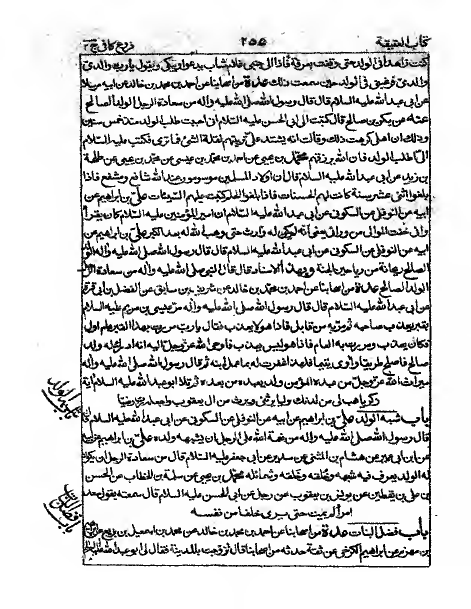 كتاب العقيقة ٢٥٥ فروع كافي ج ٢
كنت زاهدا في الولد حتى وقفت بعرفة فاذا الى جنبي غلام شاب يدعو ويبكي ويقول يا رب والدي
والدي فرغبني في الولد حين سمعت ذلك عدة من اصحابنا عن احمد بن محمد بن خالد عن ابيه
عن ابي عبد الله عليه السلام قال قال رسول الله صلى الله عليه وآله من سعادة الرجل الولد الصالح
عنه عن بكر بن صالح قال كتبت الى ابي الحسن عليه السلام اني اجتنبت طلب الولد منذ خمس سنين
وذلك ان اهلي كرهت ذلك وقالت انه يشتد علي تربيتهم لقلة الشيء فما ترى فكتب عليه السلام
الي اطلب الولد فان الله يرزقهم محمد بن يحيى عن احمد بن محمد بن عيسى عن محمد بن يحيى عن طلحة
بن زيد عن ابي عبد الله عليه السلام قال ان اولاد المسلمين موسومون عند الله شافع ومشفع فاذا
بلغوا اثنتي عشرة سنة كانت لهم الحسنات فاذا بلغوا الحلم كتبت عليهم السيئات علي بن ابراهيم عن
ابيه عن النوفلي عن السكوني عن ابي عبد الله عليه السلام ان امير المؤمنين عليه السلام كان يقرأ
واني خفت الموالي من ورائي يعني انه لم يكن له وارث حتى وهب الله له بعد الكبر علي بن ابراهيم عن
ابيه عن النوفلي عن السكوني عن ابي عبد الله عليه السلام قال قال رسول الله صلى الله عليه وآله
الصالح ريحانة من رياحين الجنة وبهذا الاسناد قال قال النبي صلى الله عليه وآله من سعادة الرجل
الولد الصالح عدة من اصحابنا عن احمد بن محمد بن خالد عن شريف بن سابق عن الفضل بن ابي قرة
عن ابي عبد الله عليه السلام قال قال رسول الله صلى الله عليه وآله مر عيسى بن مريم عليه السلام
بقبر يعذب صاحبه ثم مر به من قابل فاذا هو لا يعذب فقال يا رب مررت بهذا القبر عام اول
فكان يعذب ومررت به العام فاذا هو ليس يعذب فاوحى الله عز وجل اليه انه ادرك له ولد
صالح فاصلح طريقا وآوى يتيما فلهذا غفرت له بما عمل ابنه ثم قال رسول الله صلى الله عليه وآله
ميراث الله عز وجل من عبده المؤمن ولد يعبده من بعده ثم تلا ابو عبد الله عليه السلام آية
زكريا هب لي من لدنك وليا يرثني ويرث من آل يعقوب واجعله رب رضيا
باب شبه الولد علي بن ابراهيم عن ابيه عن النوفلي عن السكوني عن ابي عبد الله عليه السلام
قال رسول الله صلى الله عليه وآله من نعمة الله على الرجل ان يشبهه ولده علي بن ابراهيم عن
عن ابن ابي عمير عن هشام بن المثنى عن سدير عن ابي جعفر عليه السلام قال من سعادة الرجل ان يكون
له الولد يعرف فيه شبهه وخلقه وخلقه وشمائله محمد بن يحيى عن سلمة بن الخطاب عن الحسن
بن علي بن يقطين عن يونس بن يعقوب عن رجل عن ابي الحسن عليه السلام قال سمعته يقول سعد
امرأ لم يمت حتى يرى خلفا من نفسه
باب فضل البنات عدة من اصحابنا عن احمد بن محمد بن خالد عن محمد بن اسمعيل بن بزيع عن
بن مهزم عن ابراهيم الكرخي عن ثقة حدثه من اصحابنا قال تزوجت بالمدينة فقال لي ابو عبد الله عليه السلام
باب شبه الولد
باب فضل البنات